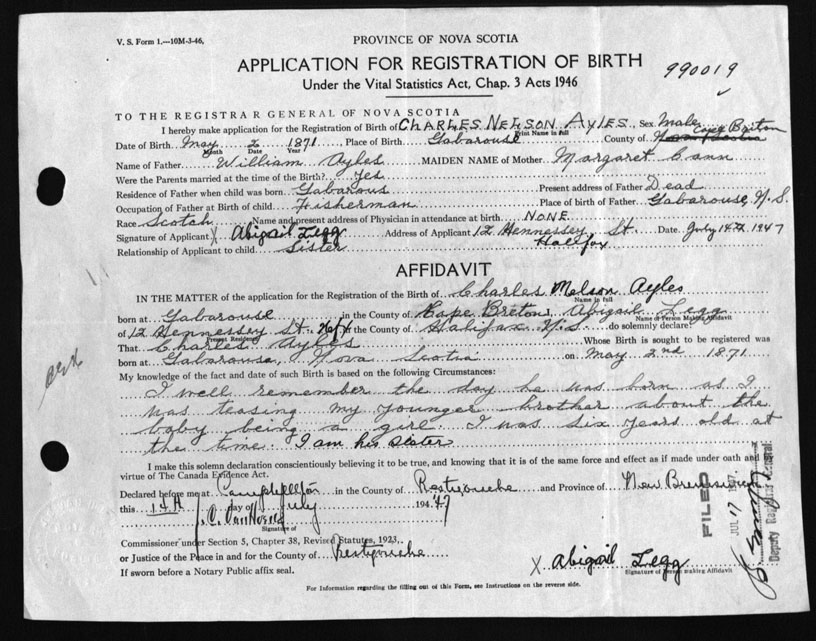 V. S. Form 1.—10M-3-46.
PROVINCE OF NOVA SCOTIA
APPLICATION FOR REGISTRATION OF BIRTH
990019
Under the Vital Statistics Act, Chap. 3 Acts 1946
TO THE REGISTRAR GENERAL OF NOVA SCOTIA
I hereby make application for the Registration of Birth of CHARLES NELSON AYLES. Sex Male
Print Name in full
Date of Birth May 2 1871 Place of Birth Gabarouse County of Cape Breton
Month Date Year
Name of Father William Ayles MAIDEN NAME of Mother Margaret Cann
Were the Parents married at time of the Birth? Yes
Residence of Father when child was born Gabarous Present address of Father Dead
Occupation of Father at Birth of child Fisherman Place of birth of Father Gabarouse, N.S.
Race Scotch Name and present address of Physician in attendance at birth NONE
Signature of Applicant X Abigail Legg Address of Applicant 12 Hennessey St. Halifax Date July 14 1947
Relationship of Applicant to child Sister
AFFIDAVIT
IN THE MATTER of the application for the Registration of the Birth of Charles Nelson Ayles
Name in full
born at Gabarouse in the County of Cape Breton, Abigail Legg
Name of Person Making Affidavit
of 12 Hennessey St. Hfx or the County of Halifax N.S. do solemnly declare:
Present Residence
That Charles Ayles Whose Birth is sought to be registered was
born at Gabarouse, Nova Scotia on May 2nd 1871
My knowledge of the fact and date of such Birth is based on the following Circumstances:
I well remember the day he was born as I
was teasing my younger brother about the
baby being a girl. I was six years old at
the time. I am his sister
I make this solemn declaration conscientiously believing it to be true, and knowing that it is of the same force and effect as if made under oath and
virtue of The Canada Evidence Act.
Declared before me at Campbellton in the County of Restigouche and Province of New Brunswick
this 14th day of July 1947
Signature of
Commissioner under Section 5, Chapter 38, Revised Statutes, 1923,
or Justice of the Peace in and for the County of Restigouche
If sworn before a Notary Public affix seal.
X Abigail Legg
Signature of Person making Affidavit
FILED
JUL 17 1947
Deputy Registrar General
For Information regarding the filling out of this Form, see Instructions on the reverse side.